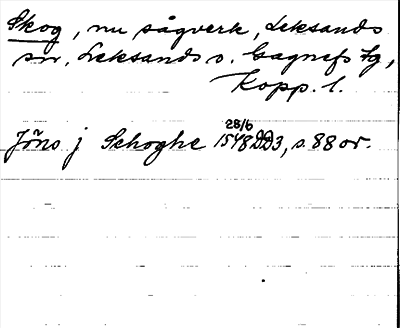 Skog, nu sågverk, Leksands
sn, Leksands o. Gagnefs tg,
Kopp. l.
28/6
Jöns j Schoghe 1548 DD3, s. 88 or.